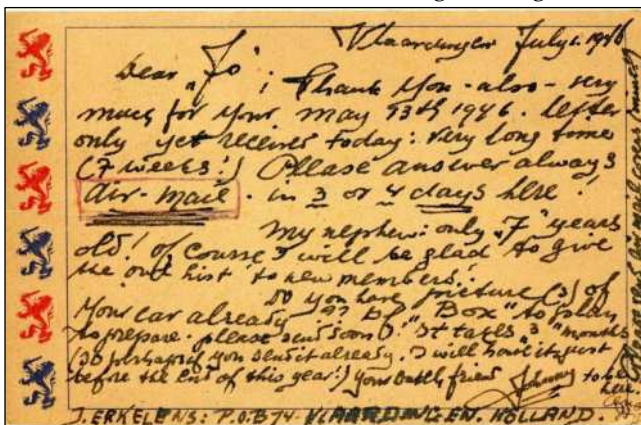 Vlaardingen July 1. 1946
Dear "Jo"; Thank you - also - very
much for your may 13th 1946. letter
only yet received today: very long time
(7 weeks!) Please answer always
air-mail. in 3 or 4 days here!
my nephew: only "7" years
old! of course I will be glad to give
the out hist to new members!
Do you have picture (s) of
your car already ?? of "Box" to plan
to prepare. please send soon
it takes 3 "months
(So perhaps if you send it already. I will have it just
before the end of this year!) your Dutch friend
Johnny to
here.
J. ERKELENS: P.O.B 74 - VLAARDINGEN. HOLLAND.